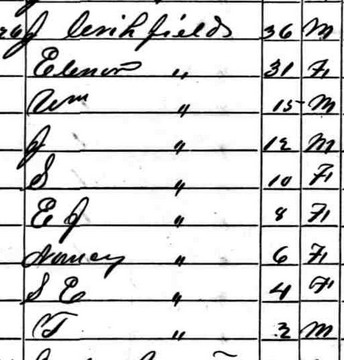 J Crihfields 36 M
Elenor " 31 F
Wm " 15 M
J " 12 M
S " 10 F
E J " 8 F
Nancy " 6 F
S E " 4 F
T " 2 M